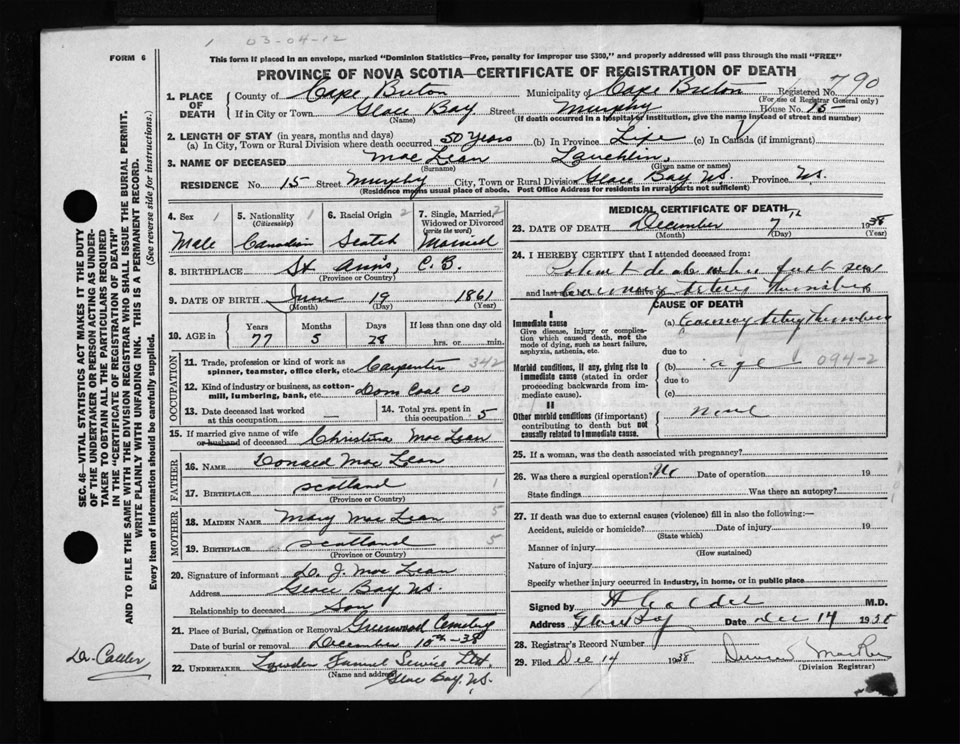 1 03-04-12
FORM 6
This form if placed in an envelope, marked "Dominion Statistics—Free, penalty for improper use $300," and properly addressed will pass through the mail "FREE"
PROVINCE OF NOVA SCOTIA—CERTIFICATE OF REGISTRATION OF DEATH
1. PLACE OF DEATH
County of Cape Breton Municipality of Cape Breton Registered No. 790
(For use of Registrar General only)
If in City or Town Glace Bay Street Murphy House No. 15
(Name) (If death occurred in a hospital or institution, give the name instead of street and number)
2. LENGTH OF STAY (in years, months and days)
(a) In City, Town or Rural Division where death occurred 50 years (b) In Province Life (c) In Canada (if immigrant)
3. NAME OF DECEASED Mac Lean Lauchlin,
(Surname) (Given name or names)
RESIDENCE No. 15 Street Murphy City, Town or Rural Division Glace Bay, N.S. Province N.S.
(Residence means usual place of abode. Post Office Address for residents in rural parts not sufficient)
4. Sex 1 Male
5. Nationality 1 (Citizenship) Canadian
6. Racial Origin 2 Scotch
7. Single, Married, Widowed or Divorced 2 (write the word) Married
8. BIRTHPLACE St Ann's, C.B.
(Province or Country)
9. DATE OF BIRTH June 19 1861
(Month) (Day) (Year)
10. AGE in Years Months Days If less than one day old
77 5 28 hrs. or min.
OCCUPATION
11. Trade, profession or kind of work as spinner, teamster, office clerk, etc. Carpenter 342
12. Kind of industry or business, as cotton-mill, lumbering, bank, etc. Dom Coal Co
13. Date deceased last worked at this occupation —
14. Total yrs. spent in this occupation 5
15. If married give name of wife or husband of deceased Christena Mac Lean
FATHER
16. NAME Donald Mac Lean
17. BIRTHPLACE Scotland 1
(Province or Country)
MOTHER
18. MAIDEN NAME Mary Mac Lean 5
19. BIRTHPLACE Scotland 5
(Province or Country)
20. Signature of informant D. J. Mac Lean
Address Glace Bay N.S.
Relationship to deceased Son
21. Place of Burial, Cremation or Removal Greenwood Cemetery
Date of burial or removal December 10th - 38
22. UNDERTAKER Funeral Service Ltd.
(Name and address) Glace Bay, N.S.
MEDICAL CERTIFICATE OF DEATH
23. DATE OF DEATH December 7th 1938
(Month) (Day) (Year)
24. I HEREBY CERTIFY that I attended deceased from:
and last
CAUSE OF DEATH
I
Immediate cause
Give disease, injury or complication which caused death, not the mode of dying, such as heart failure, asphyxia, asthenia, etc.
(a)
due to
Morbid conditions, if any, giving rise to immediate cause (stated in order proceeding backwards from immediate cause)
(b) age 094-2
due to
(c)
II
Other morbid conditions (if important) contributing to death but not causally related to immediate cause.
none
25. If a woman, was the death associated with pregnancy?
26. Was there a surgical operation? No Date of operation 19
State findings Was there an autopsy?
27. If death was due to external causes (violence) fill in also the following:—
Accident, suicide or homicide? Date of injury 19
(State which)
Manner of injury
(How sustained)
Nature of injury
Specify whether injury occurred in industry, in home, or in public place
Signed by M.D.
Address Glace Bay Date Dec 14 1938
28. Registrar's Record Number
29. Filed Dec 14 1938
(Division Registrar)
SEC. 46—VITAL STATISTICS ACT MAKES IT THE DUTY OF THE UNDERTAKER OR PERSON ACTING AS UNDERTAKER TO OBTAIN ALL THE PARTICULARS REQUIRED IN THE "CERTIFICATE OF REGISTRATION OF DEATH" AND TO FILE THE SAME WITH THE DIVISION REGISTRAR WHO SHALL ISSUE THE BURIAL PERMIT.
WRITE PLAINLY WITH UNFADING INK. THIS IS A PERMANENT RECORD.
Every item of information should be carefully supplied. (See reverse side for instructions.)
Dr. Calder